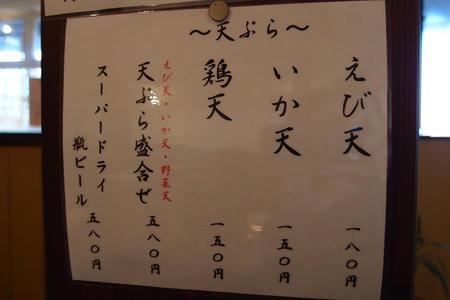 ～天ぷら～
えび天 一八〇円
いか天 一五〇円
鶏天 一五〇円
えび天・いか天・野菜天
天ぷら盛合せ 五八〇円
スーパードライ
瓶ビール 五八〇円